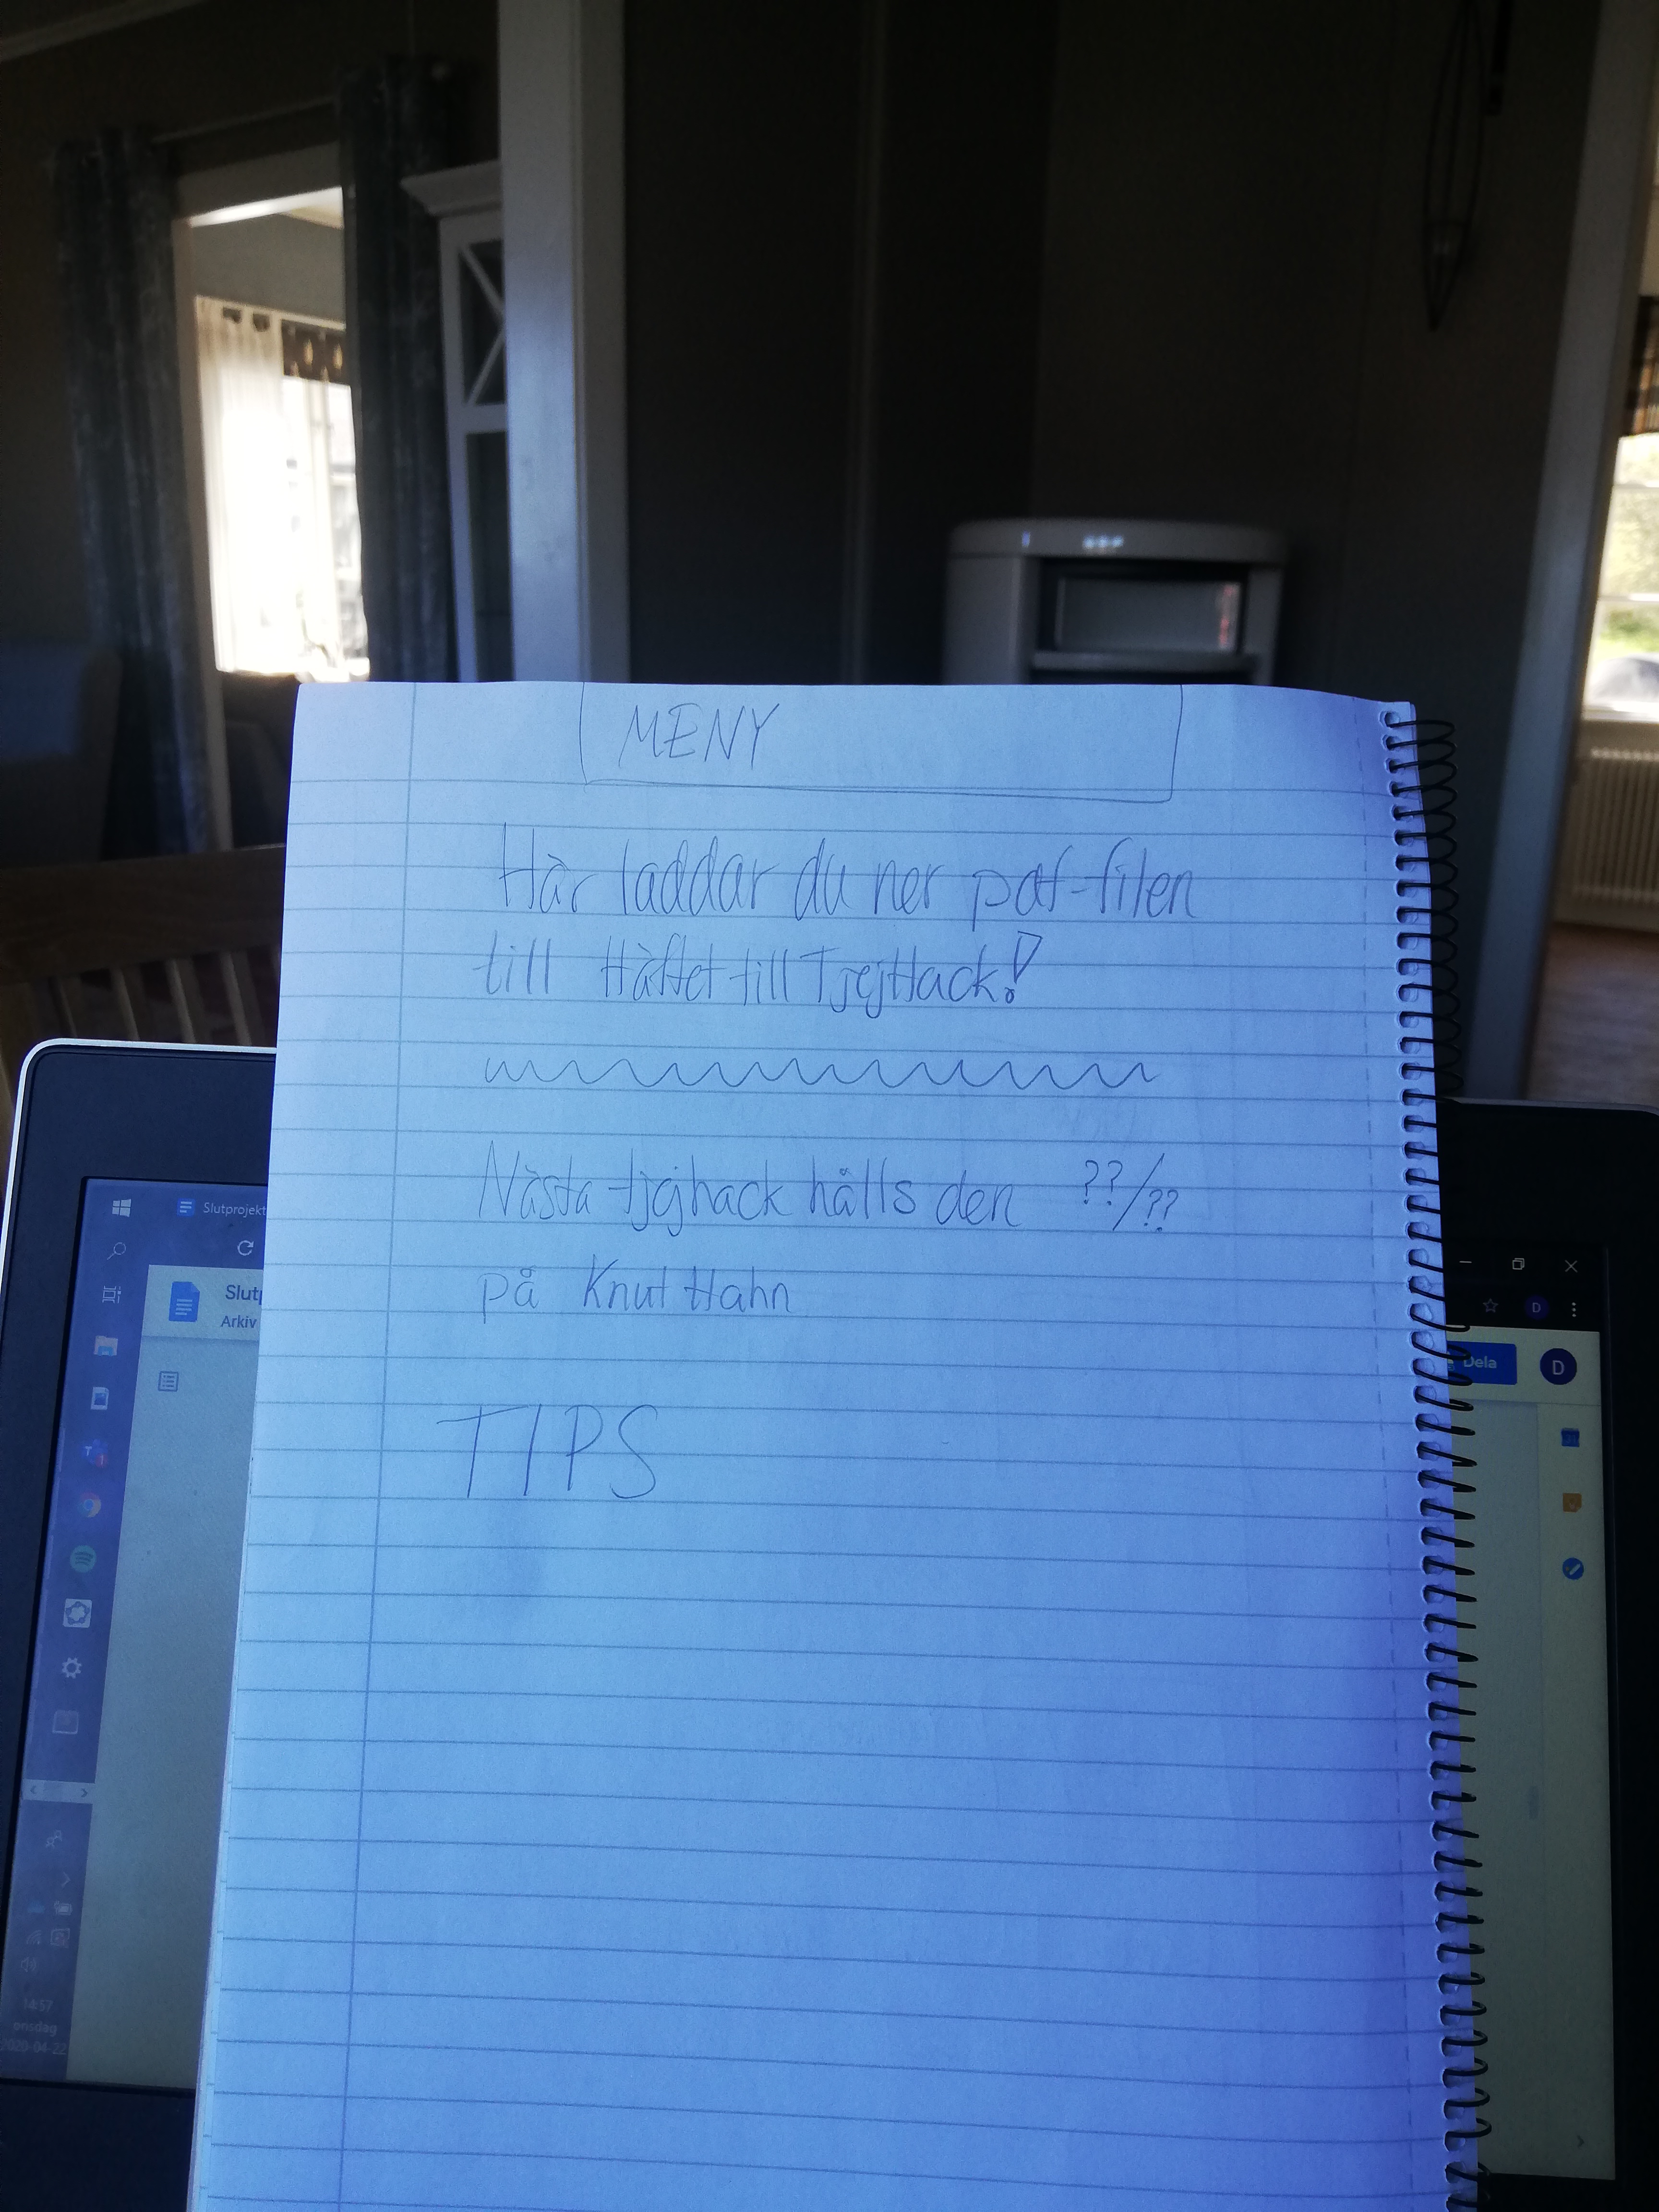 MENY
Här laddar du ner pdf-filen
till Häftet till TjejHack!
Nästa tjejhack hålls den ??/??
på Knut Hahn
TIPS
Slutprojekt
Slutp
Arkiv
Dela
D
D
14:57
onsdag
2020-04-22